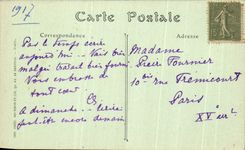 1917
Carte Postale
Correspondance
Adresse
Pas le temps écrire
aujourd'hui — Vais bien
malgré travail bien fourni
Vous embrasse de
tout cœur
A dimanche
peut-être encore demain
Madame
Pierre Fournier
10 bis rue Fremicourt
Paris
XVe arr.